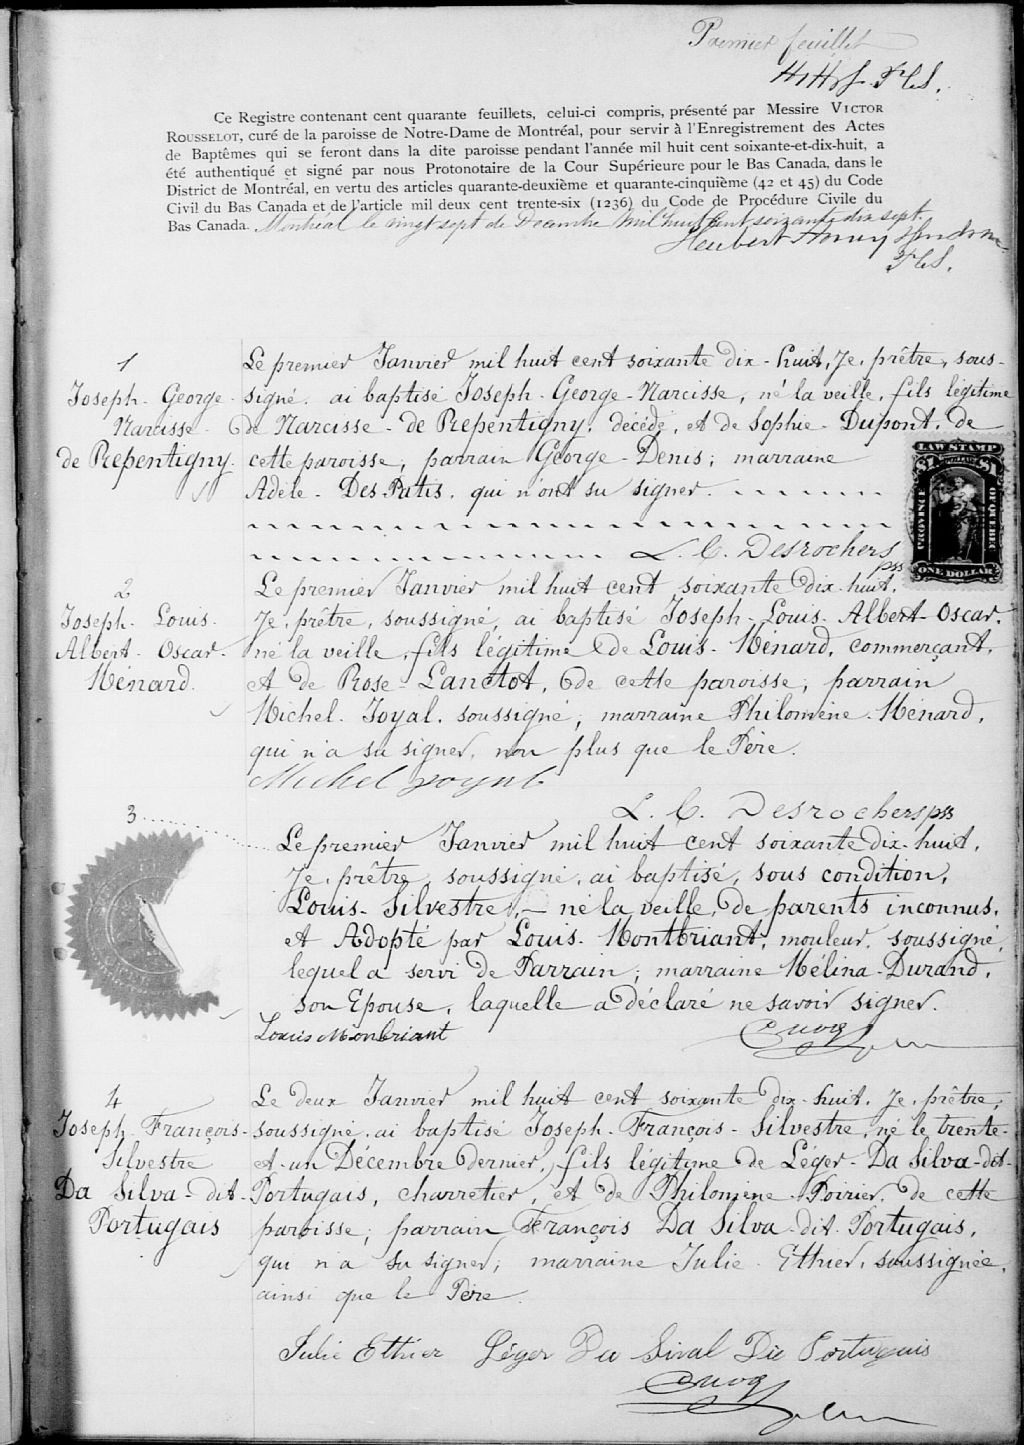 Premier feuillet
Ce Registre contenant cent quarante feuillets, celui-ci compris, présenté par Messire VICTOR
ROUSSELOT, curé de la paroisse de Notre-Dame de Montréal, pour servir à l'Enregistrement des Actes
de Baptêmes qui se feront dans la dite paroisse pendant l'année mil huit cent soixante-et-dix-huit, a
été authentiqué et signé par nous Protonotaire de la Cour Supérieure pour le Bas Canada, dans le
District de Montréal, en vertu des articles quarante-deuxième et quarante-cinquième (42 et 45) du Code
Civil du Bas Canada et de l'article mil deux cent trente-six (1236) du Code de Procédure Civile du
Bas Canada. Montréal le vingt sept de Decembre mil huit cent soixante dix sept.
1
Joseph - George -
Narcisse -
de Repentigny.
Le premier Janvier mil huit cent soixante dix-huit, Je, prêtre, sous-
signé, ai baptisé Joseph - George - Narcisse, né la veille, fils légitime
de Narcisse - de Repentigny, décédé, et de Sophie - Dupont, de
cette paroisse; parrain George - Denis; marraine
Adèle - Des Patis, qui n'ont su signer.
L. C. Desrochers
pss
LAW STAMP
$1 $1
PROVINCE OF QUEBEC
ONE DOLLAR
2
Joseph - Louis -
Albert - Oscar -
Ménard.
Le premier Janvier mil huit cent soixante dix-huit,
Je, prêtre, soussigné, ai baptisé Joseph - Louis - Albert - Oscar,
né la veille, fils légitime de Louis - Ménard, commerçant,
et de Rose - Lanctot, de cette paroisse; parrain
Michel - Joyal, soussigné; marraine Philomène - Ménard,
qui n'a su signer, non plus que le Père.
Michel Joyal
L. C. Desrochers pss
3
Le premier Janvier mil huit cent soixante dix-huit,
Je, prêtre, soussigné, ai baptisé, sous condition,
Louis - Silvestre, né la veille, de parents inconnus,
et Adopté par Louis - Montbriant, mouleur, soussigné,
lequel a servi de Parrain; marraine Mélina - Durand,
son Epouse, laquelle a déclaré ne savoir signer.
Louis Monbriant
Cuoq
4
Joseph - François -
Silvestre
Da Silva - dit -
Portugais
Le deux Janvier mil huit cent soixante dix-huit, Je, prêtre,
soussigné, ai baptisé Joseph - François - Silvestre, né le trente-
et-un Décembre dernier, fils légitime de Léger - Da Silva - dit -
Portugais, charretier, et de Philomène - Poirier, de cette
paroisse; parrain François Da Silva - dit - Portugais,
qui n'a su signer; marraine Julie - Ethier, soussignée,
ainsi que le Père.
Julie Ethier Léger Da Sival Dit Portugais
Cuoq